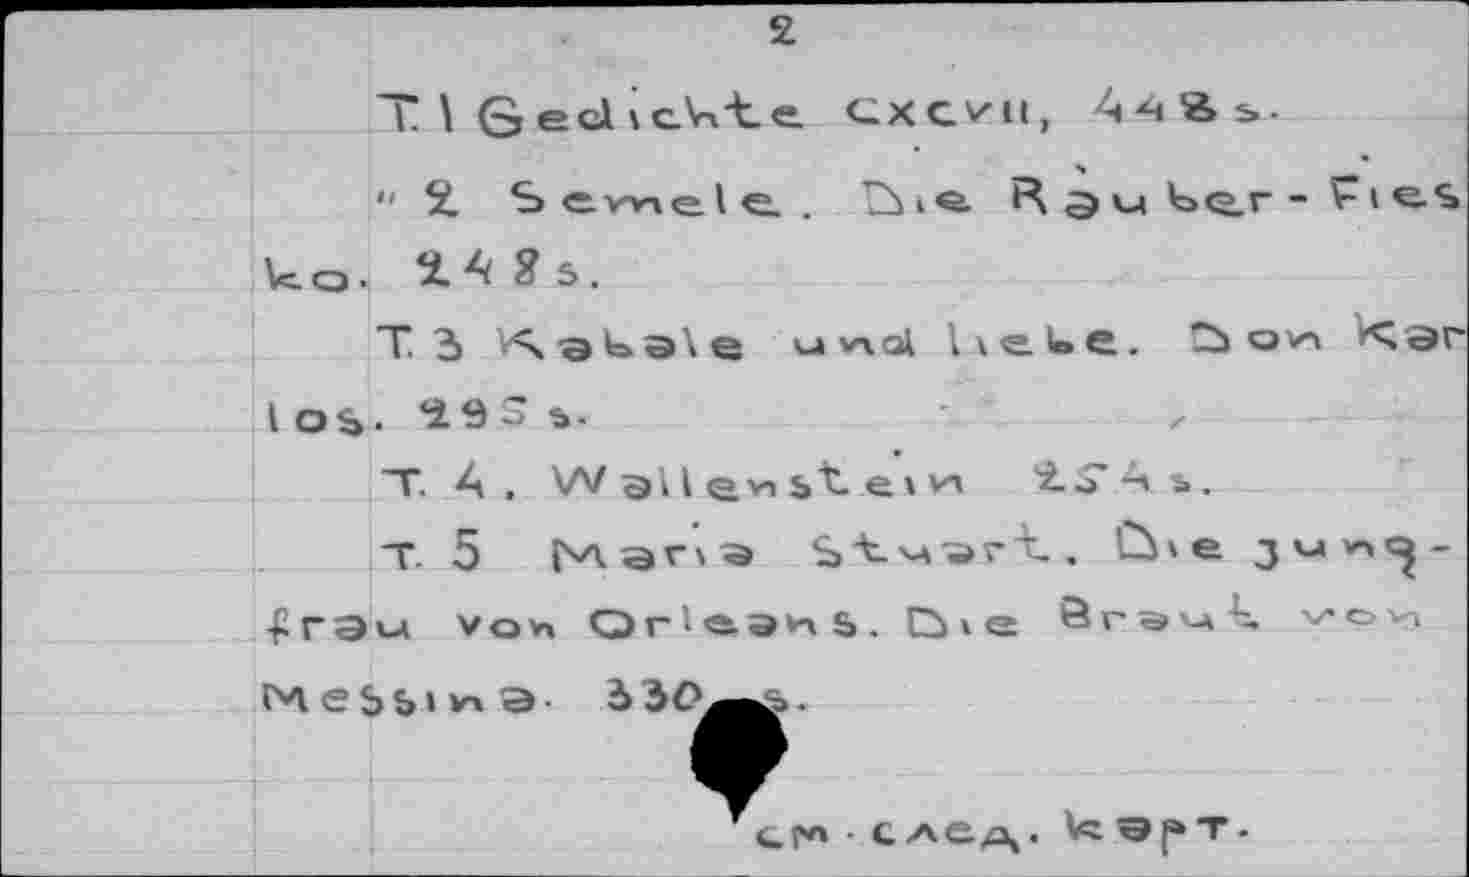 2
T. 1 Gedichte CXCVII, 448 s.
" 2. Semele. Die Räuber - Fies
ko. 248 s.
T. 3 Kabale und liebe. Don Kar
los. 295 s.
T. 4. Wallenstein 254 s.
T. 5 Maria Stuart. Die jung-
frau von Orleans. Die Braut von
Messina. 330 s.
см. след. карт.